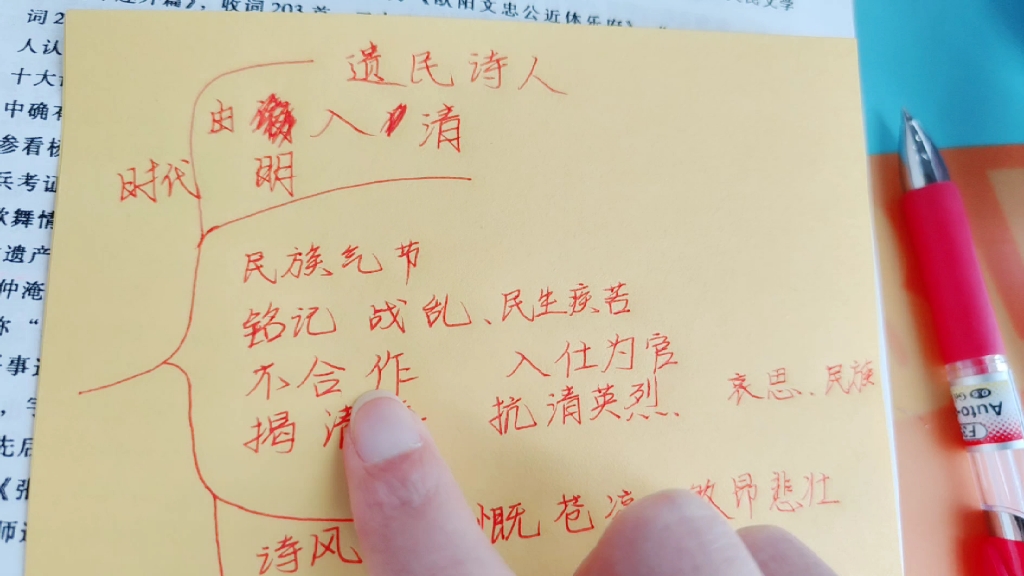 外篇》，收词203首
《欧阳文忠公近体乐府》
文学
词2
人认
十大
中确有
参看
兵考证
歌舞情
遗产
仲淹
称“
事
先后
《张
师
遗民诗人
由 入 清
明
时代
民族气节
铭记 战乱、民生疾苦
不合作 入仕为官
揭清 抗清英烈、哀思、民族
诗风 慨苍凉 昂悲壮
Auto